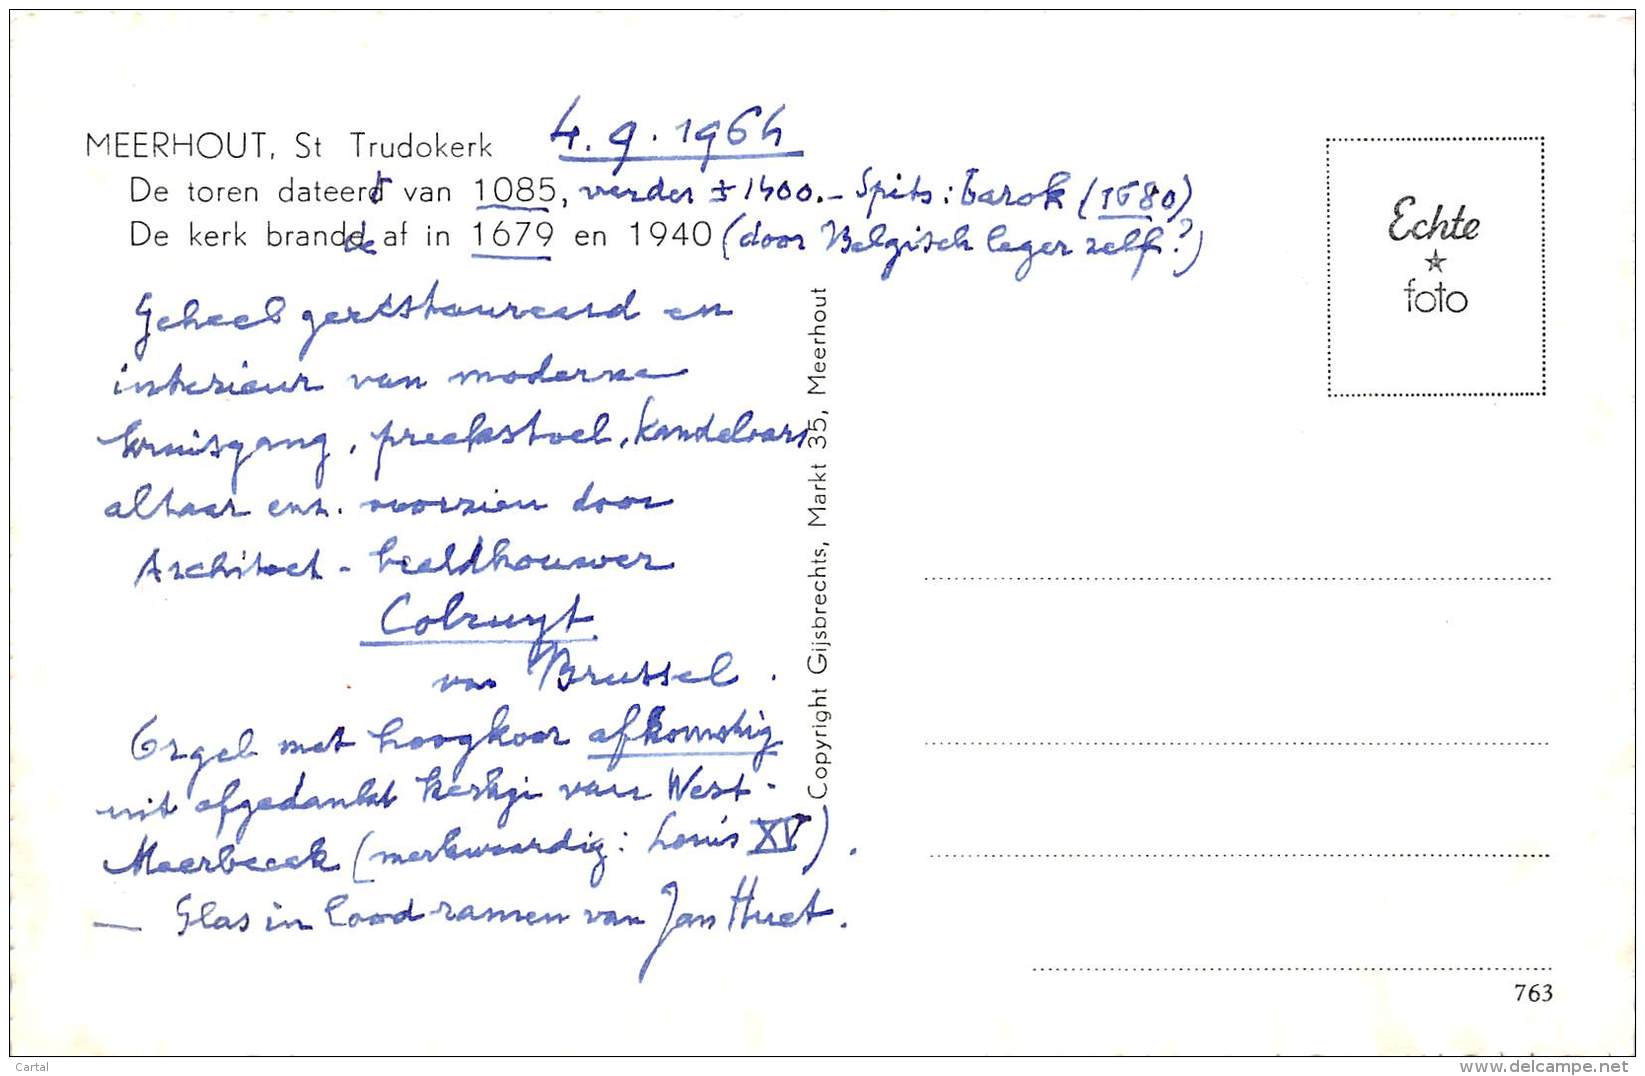 MEERHOUT, St Trudokerk 4.9.1964
De toren dateert van 1085, verder ± 1400.- Spits: Barok (1680)
De kerk brandde af in 1679 en 1940 (door Belgisch leger zelf?)
Geheel gerestaureerd en
interieur van moderne
kruisgang, preekstoel, kandelaars
altaar enz. voorzien door
Architect - beeldhouwer
Colruyt
van Brussel.
Orgel met hoogkoor afkomstig
uit afgedankt kerkje van West-
Meerbeeck (merkwaardig: Louis XV).
— Glas in lood ramen van Jan Huet.
Copyright Gijsbrechts, Markt 35, Meerhout
Echte
foto
763
Cartal
www.delcampe.net